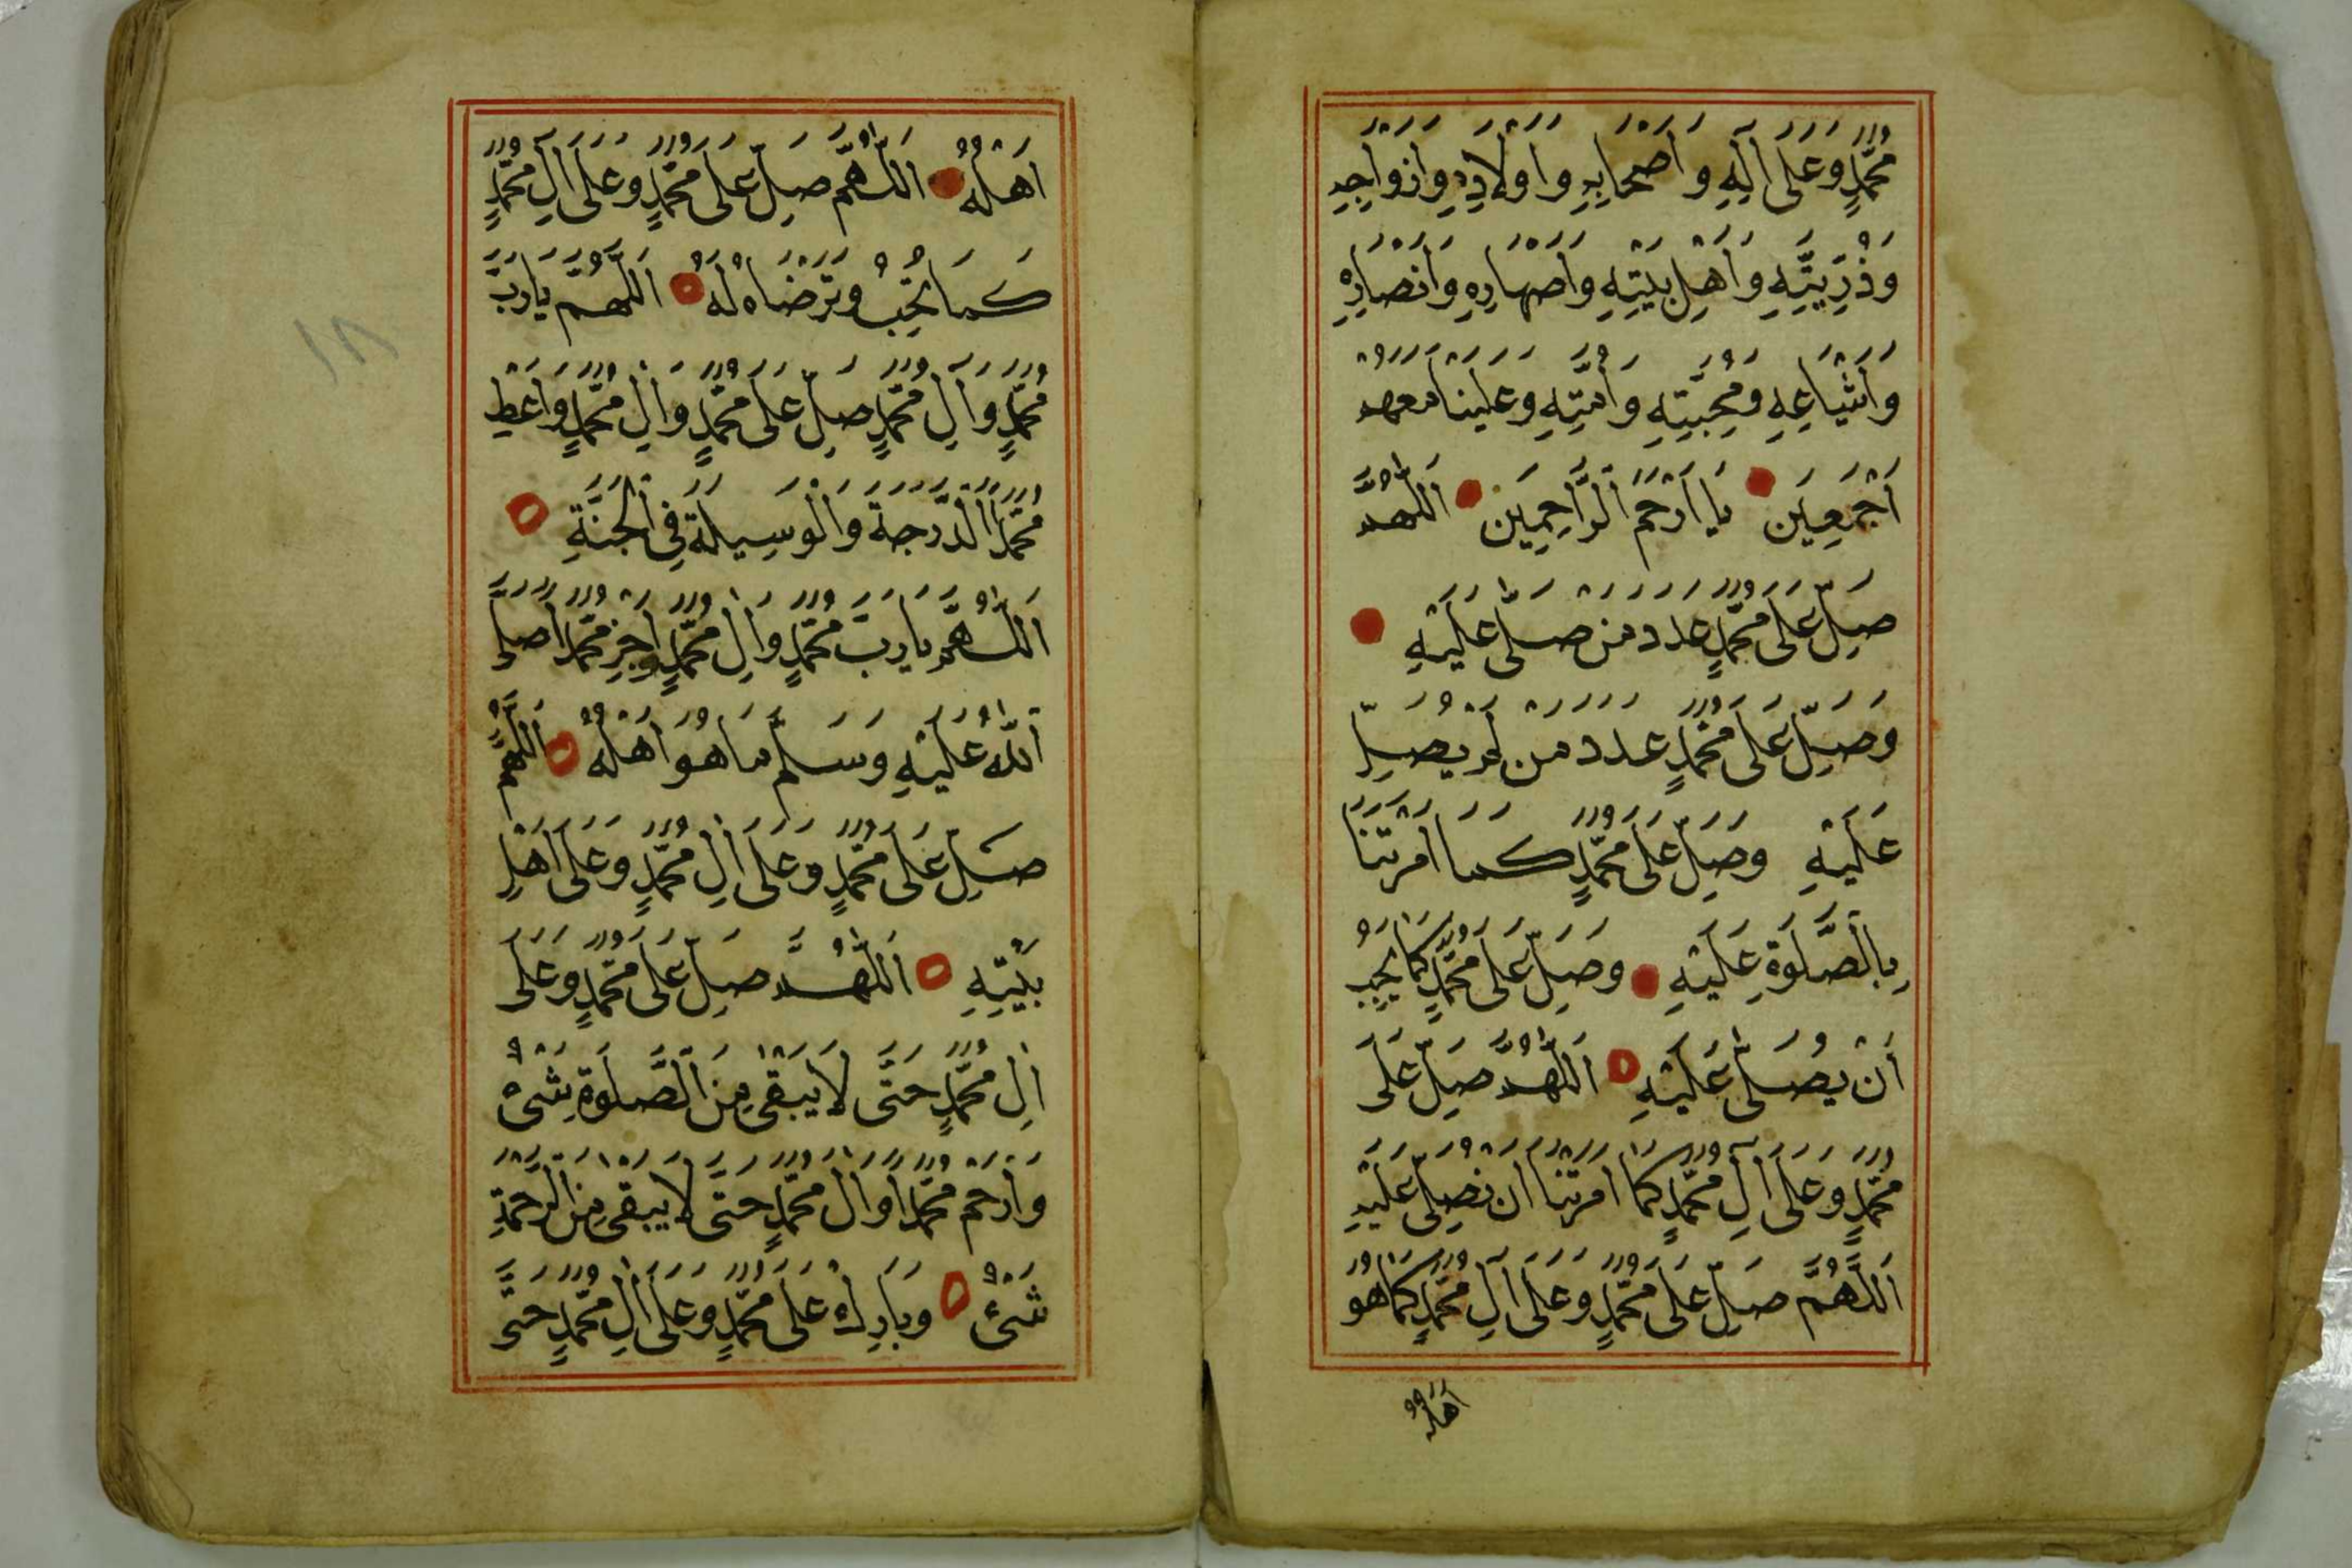 مُحَمَّدٍ وَعَلَى اٰلِهِ وَاَصْحَابِهِ وَاَوْلَادِهِ وَاَزْوَاجِهِ
وَذُرِّيَّتِهِ وَاَهْلِ بَيْتِهِ وَاَصْهَارِهِ وَاَنْصَارِهِ
وَاَشْيَاعِهِ وَمُحِبِّيهِ وَاُمَّتِهِ وَعَلَيْنَا مَعَهُمْ
اَجْمَعِينَ يَا اَرْحَمَ الرَّاحِمِينَ اَللّٰهُمَّ
صَلِّ عَلَى مُحَمَّدٍ عَدَدَ مَنْ صَلَّى عَلَيْهِ
وَصَلِّ عَلَى مُحَمَّدٍ عَدَدَ مَنْ لَمْ يُصَلِّ
عَلَيْهِ وَصَلِّ عَلَى مُحَمَّدٍ كَمَا اَمَرْتَنَا
بِالصَّلَوةِ عَلَيْهِ وَصَلِّ عَلَى مُحَمَّدٍ كَمَا يُحِبُّ
اَنْ يُصَلَّى عَلَيْهِ اَللّٰهُمَّ صَلِّ عَلَى
مُحَمَّدٍ وَعَلَى اٰلِ مُحَمَّدٍ كَمَا اَمَرْتَنَا اَنْ نُصَلِّىَ عَلَيْهِ
اَللّٰهُمَّ صَلِّ عَلَى مُحَمَّدٍ وَعَلَى اٰلِ مُحَمَّدٍ كَمَا هُوَ
اَهْلُهُ
اَهْلُهُ اَللّٰهُمَّ صَلِّ عَلَى مُحَمَّدٍ وَعَلَى اٰلِ مُحَمَّدٍ
كَمَا تُحِبُّ وَتَرْضَاهُ لَهُ اَللّٰهُمَّ يَا رَبَّ
مُحَمَّدٍ وَاٰلِ مُحَمَّدٍ صَلِّ عَلَى مُحَمَّدٍ وَاٰلِ مُحَمَّدٍ وَاَعْطِ
مُحَمَّدًا الدَّرَجَةَ وَالْوَسِيلَةَ فِى الْجَنَّةِ
اَللّٰهُمَّ يَا رَبَّ مُحَمَّدٍ وَاٰلِ مُحَمَّدٍ اَجْزِ مُحَمَّدًا صَلَّى
اللّٰهُ عَلَيْهِ وَسَلَّمَ مَا هُوَ اَهْلُهُ اَللّٰهُمَّ
صَلِّ عَلَى مُحَمَّدٍ وَعَلَى اٰلِ مُحَمَّدٍ وَعَلَى اَهْلِ
بَيْتِهِ اَللّٰهُمَّ صَلِّ عَلَى مُحَمَّدٍ وَعَلَى
اٰلِ مُحَمَّدٍ حَتَّى لَا يَبْقَى مِنَ الصَّلَوةِ شَىْءٌ
وَارْحَمْ مُحَمَّدًا وَاٰلَ مُحَمَّدٍ حَتَّى لَا يَبْقَى مِنَ الرَّحْمَةِ
شَىْءٌ وَبَارِكْ عَلَى مُحَمَّدٍ وَعَلَى اٰلِ مُحَمَّدٍ حَتَّى
١٨